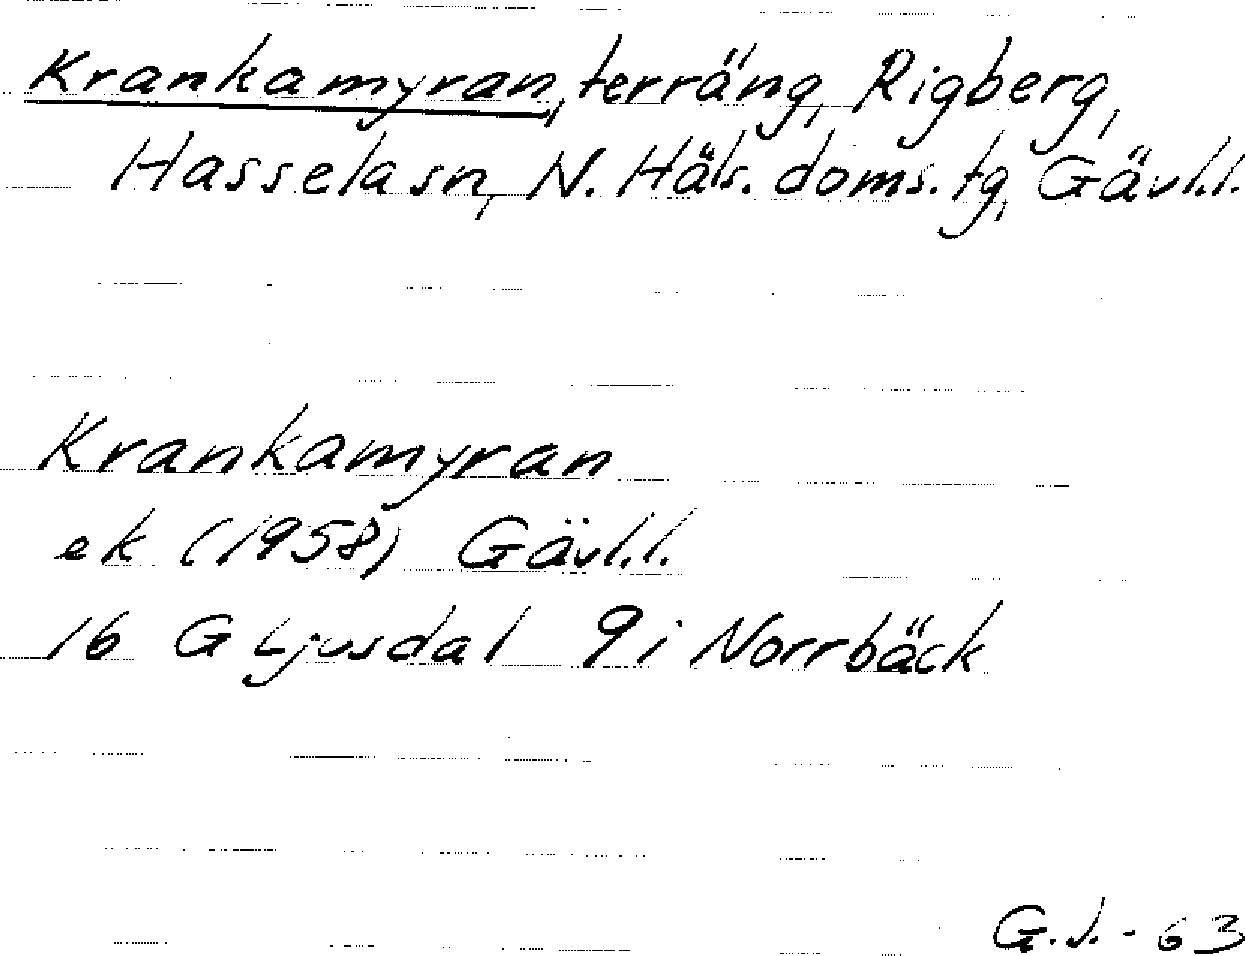 Krankamyran, terräng, Rigberg,
Hasselasn, N. Häls. doms. tg, Gävl.l.
Krankamyran
ek (1958) Gävl.l.
16 G Ljusdal 9i Norrbäck
G.J.-63